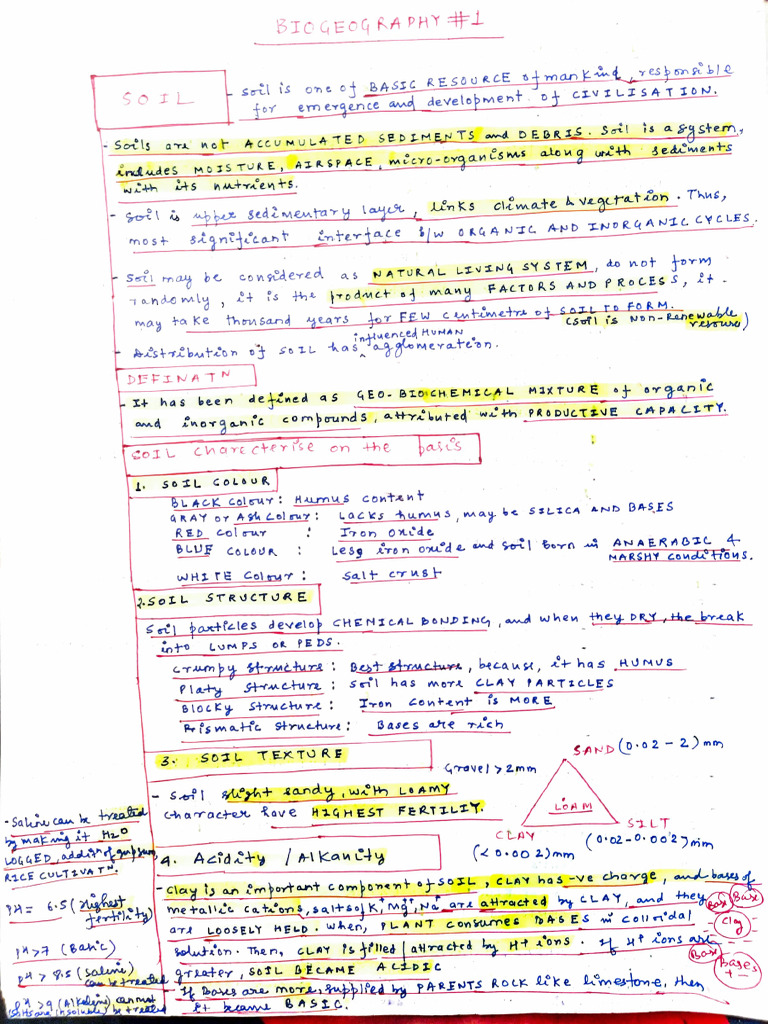 BIOGEOGRAPHY #1
SOIL
- Soil is one of BASIC RESOURCE of mankind, responsible
for emergence and development of CIVILISATION.
- Soils are not ACCUMULATED SEDIMENTS and DEBRIS. Soil is a system,
includes MOISTURE, AIRSPACE, micro-organisms along with sediments
with its nutrients.
- Soil is upper sedimentary layer, links climate & vegetation. Thus,
most significant interface b/w ORGANIC AND INORGANIC CYCLES.
- Soil may be considered as NATURAL LIVING SYSTEM, do not form
randomly, it is the product of many FACTORS AND PROCESS, it
may take thousand years for FEW centimetre of SOIL TO FORM.
(Soil is NON-Renewable
resource)
- Distribution of SOIL has influenced HUMAN agglomeration.
DEFINATN
- It has been defined as GEO-BIOCHEMICAL MIXTURE of organic
and inorganic compounds, attributed with PRODUCTIVE CAPACITY.
SOIL characterise on the basis
1. SOIL COLOUR
BLACK colour: Humus content
GRAY or Ash colour: Lacks humus, may be SILICA AND BASES
RED colour : Iron oxide
BLUE COLOUR : Less iron oxide and soil born in ANAERABIC &
MARSHY CONDITIONS.
WHITE colour: salt crust
2. SOIL STRUCTURE
Soil particles develop CHEMICAL BONDING, and when they DRY, the break
into LUMPS OR PEDS.
Crumpy structure: Best structure, because, it has HUMUS
Platy structure: Soil has more CLAY PARTICLES
Blocky structure: Iron content is MORE
Prismatic structure: Bases are rich
3. SOIL TEXTURE
- Soil slight sandy, with LOAMY
character have HIGHEST FERTILIY.
Gravel > 2mm
SAND (0.02 - 2) mm
LOAM
CLAY
(< 0.002) mm
SILT
(0.02-0.002) mm
4. Acidity / Alkanity
- Clay is an important component of SOIL, CLAY has -ve charge, and bases of
metallic cations, salts of K, Mg, Na are attracted by CLAY, and they
are LOOSELY HELD. When, PLANT consumes BASES in colloidal
solution. Then, CLAY is filled / attracted by H+ ions. If H+ ions are
greater, SOIL BECAME ACIDIC
If Bases are more, supplied by PARENTS ROCK like limestone, then
it became BASIC.
Base
Base
Clay
Base
Bases
+ -
- Saline can be treated
by making it H2O
LOGGED, additn of gypsum
RICE CULTIVATN.
PH = 6.5 (Highest
fertility)
PH>7 (Basic)
PH > 8.5 (Saline)
can be treated
PH > 9 (Alkaline) cannot
(Salts are insoluble) be treated